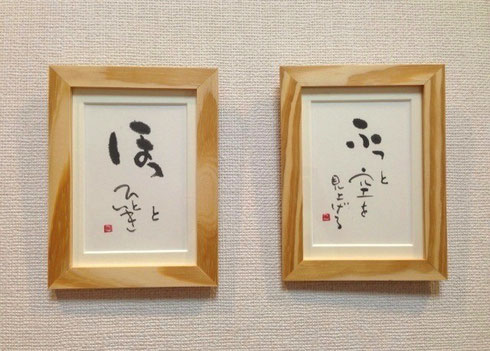 ほっ
と
ひといき
ふっ
と
空を
見上げる